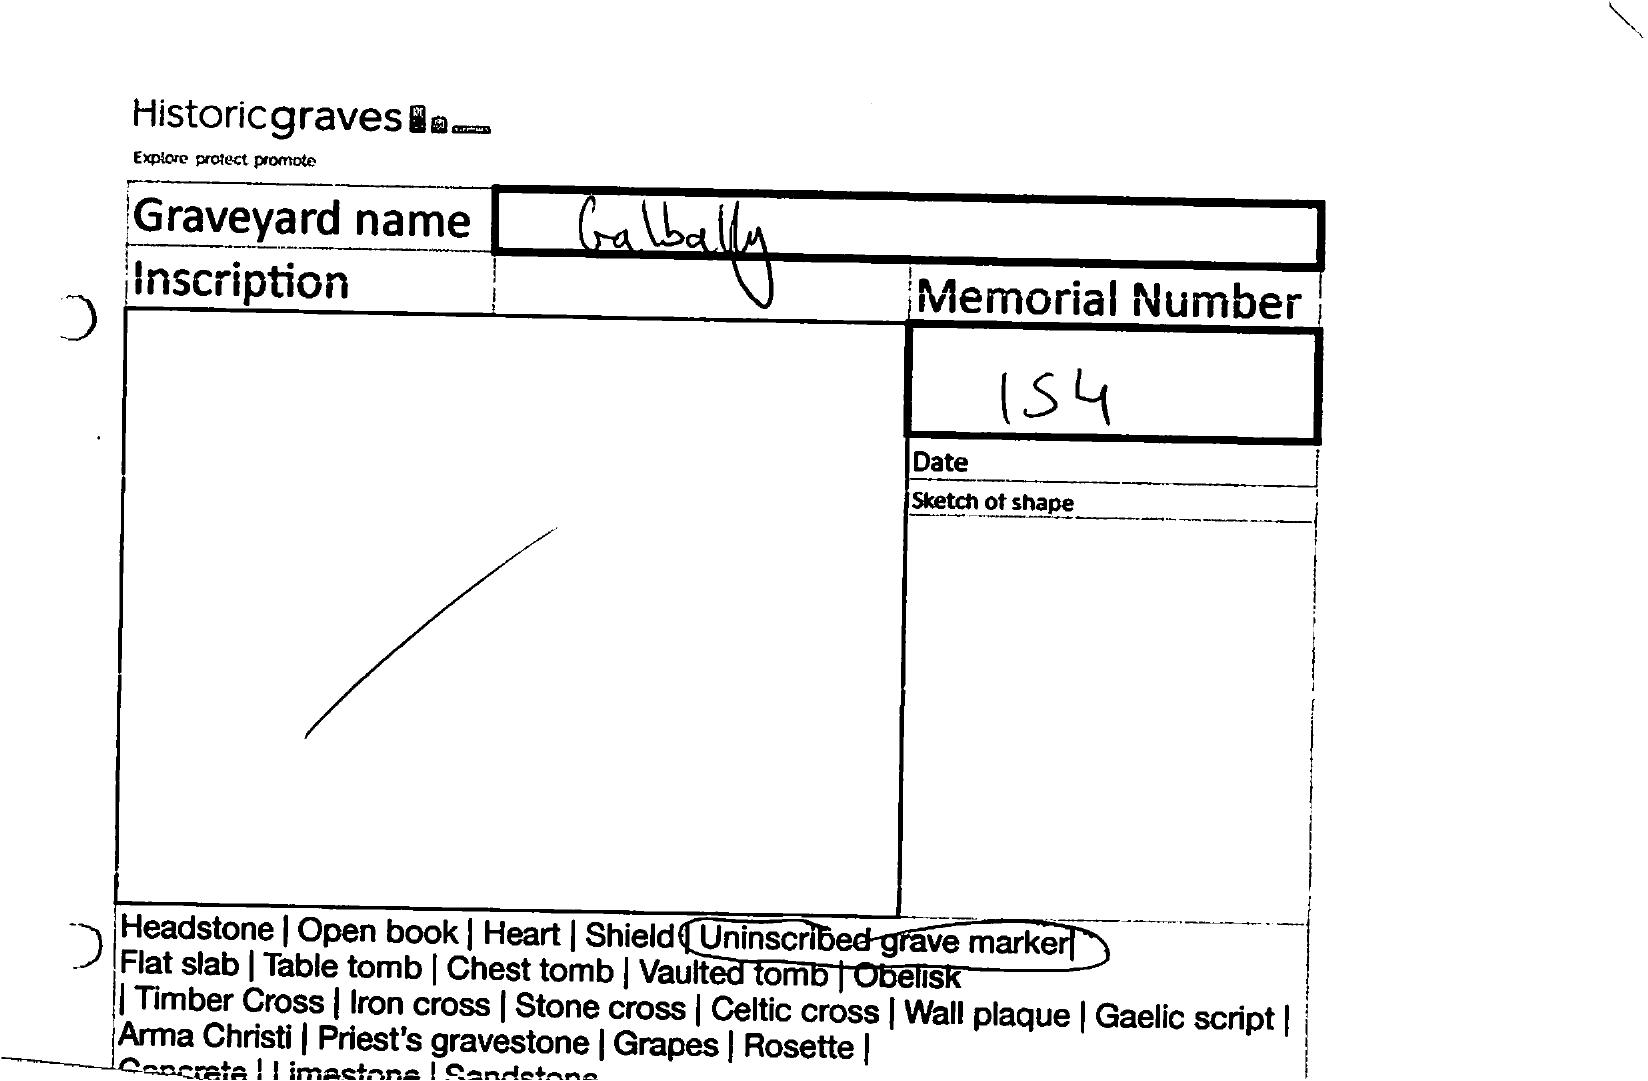 Historicgraves
Explore protect promote
Graveyard name Galbally
Inscription
Memorial Number
154
Date
Sketch of shape
Headstone | Open book | Heart | Shield | Uninscribed grave marker|
Flat slab | Table tomb | Chest tomb | Vaulted tomb | Obelisk
| Timber Cross | Iron cross | Stone cross | Celtic cross | Wall plaque | Gaelic script |
Arma Christi | Priest's gravestone | Grapes | Rosette |
Concrete | Limestone | Sandstone